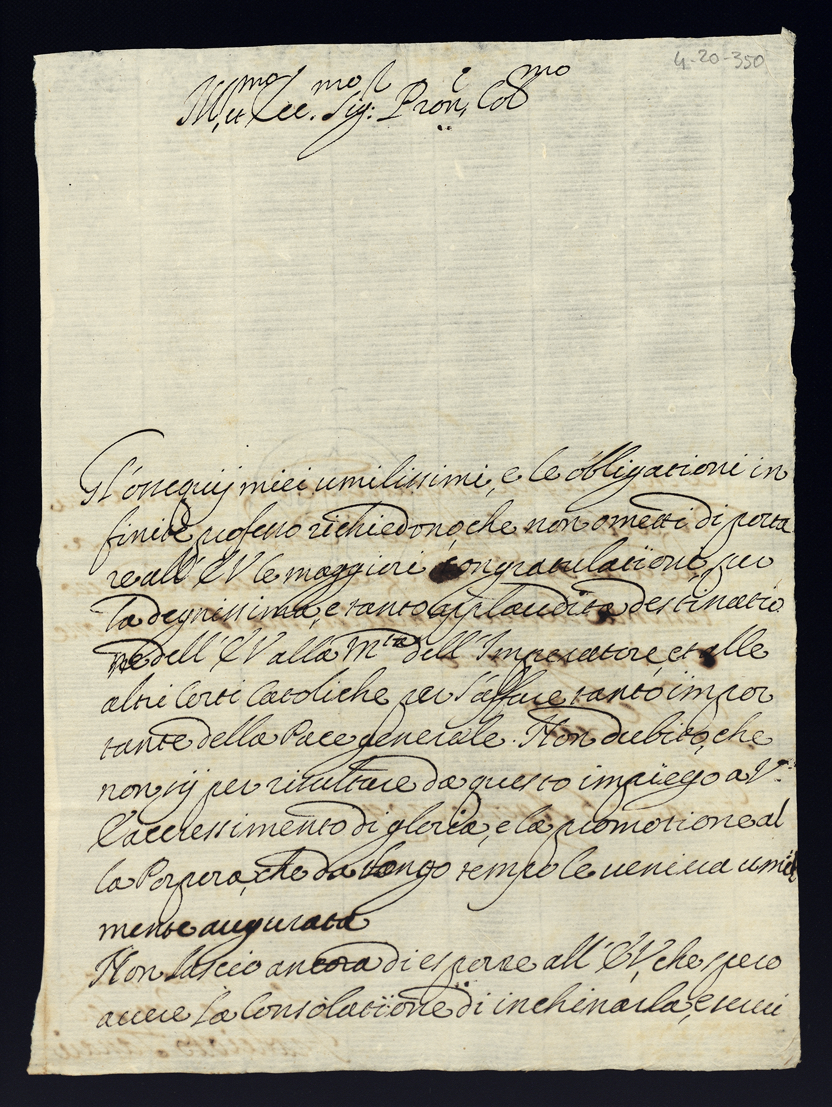 4-20-350
Ill.mo et Ecc.mo Sig: Pron, Col.mo
Gl'ossequij miei umilissimi, e le obligationi in
finite professo richiedono, che non ometti di porta
re all' EV le maggiori congratulationi, per
la degnissima, e tanto applaudita destinatio
ne dell' EV alla M.tà dell' Imperatore, et alle
altre Corti Catoliche per l'affare tanto impor
tante della Pace generale. Non dubito, che
non sij per risultare da questo impiego a V.
l'accressimento di gloria, e la promotione al
la Porpora, che da longo tempo le veniva umil
mente augurata
Non lascio ancora di esporre all' EV, che spero
avere la Consolatione di inchinarla, e servi